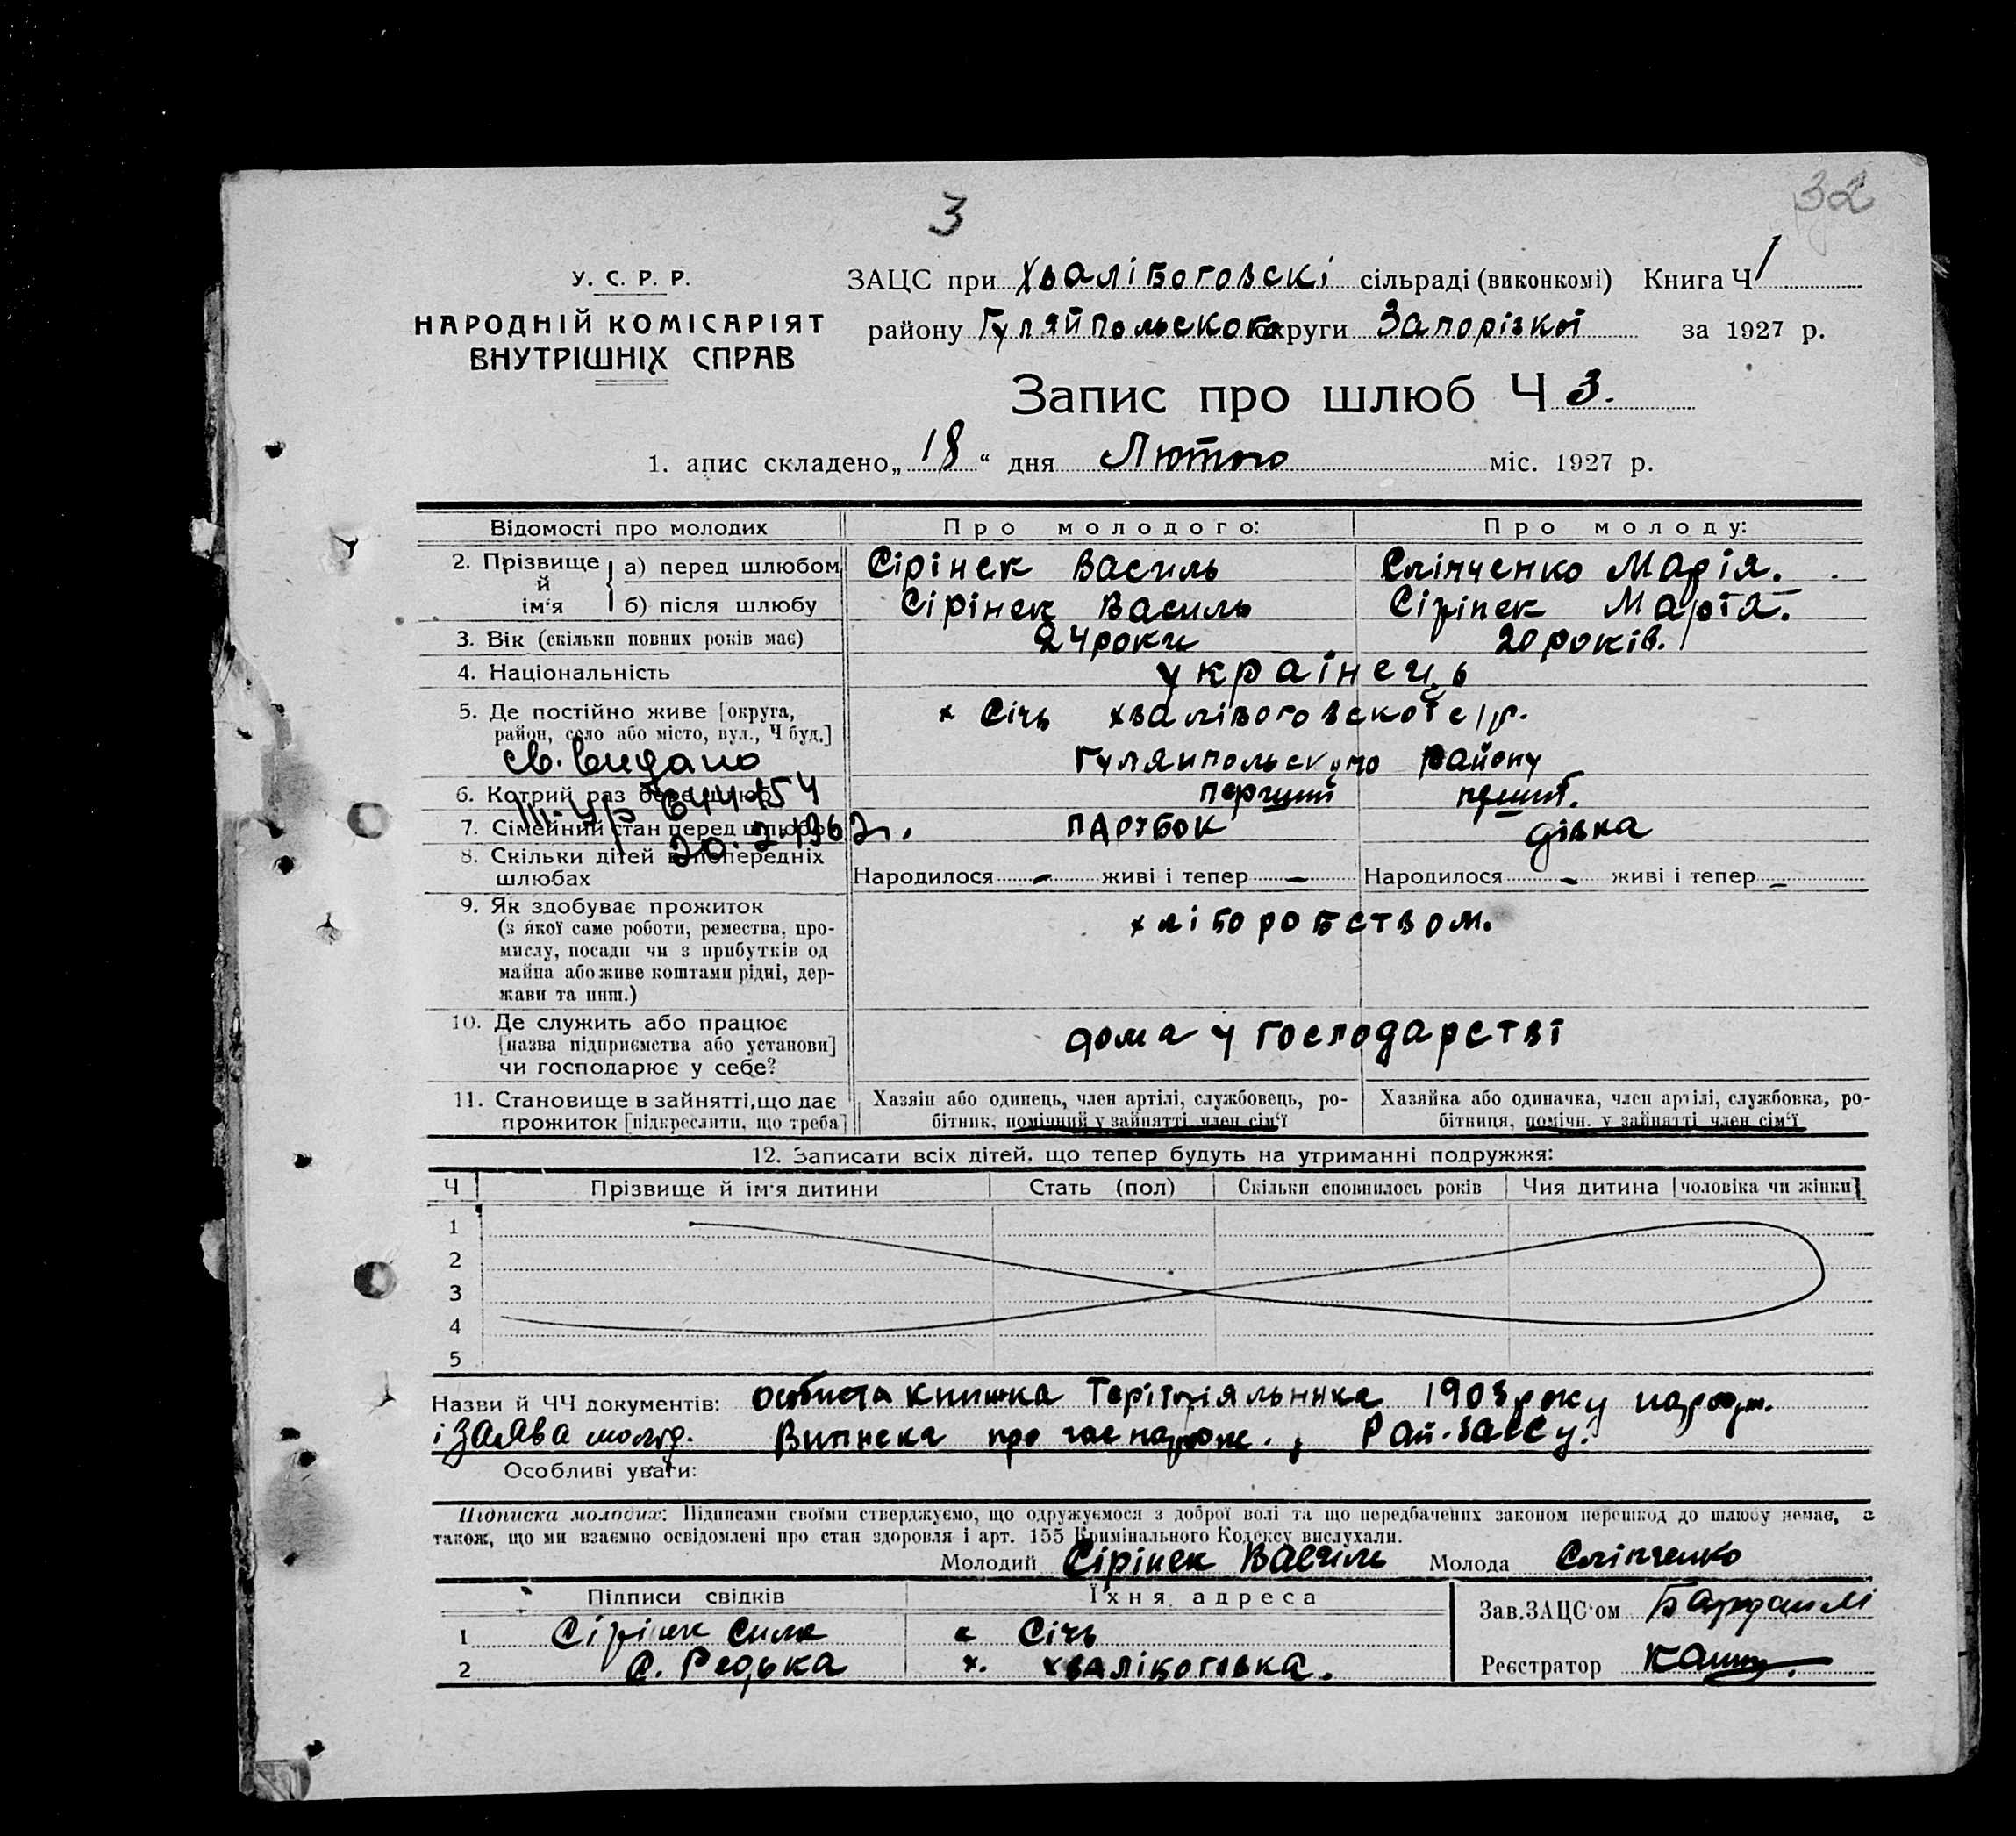 3
32
У. С. Р. Р.
НАРОДНІЙ КОМІСАРІЯТ
ВНУТРІШНІХ СПРАВ
ЗАЦС при Хвалібоговскі сільраді (виконкомі) Книга Ч 1
району Гуляйпольского округи Запорізкої за 1927 р.
Запис про шлюб Ч 3.
1. апис складено „ 18 “ дня Лютого міс. 1927 р.
Відомості про молодих Про молодого: Про молоду:
2. Прізвище й ім‘я а) перед шлюбом Сірінек Василь Сліпченко Марія.
б) після шлюбу Сірінек Василь Сірінек Марія.
3. Вік (скільки повних років має) 24 роки 20 років.
4. Національність українець
5. Де постійно живе [округа, х Січь хвалібоговскої с/р.
район, село або місто, вул., Ч буд.]
св. видано Гуляипольского району
6. Котрий раз бере шлюб перший перший.
III-УР 644154
7. Сімейний стан перед шлюбом парубок дівка
20. 2. 1962 г.
8. Скільки дітей в попередніх
шлюбах Народилося - живі і тепер - Народилося - живі і тепер -
9. Як здобуває прожиток хліборобством.
(з якої саме роботи, ремества, про-
мислу, посади чи з прибутків од
майна або живе коштами рідні, дер-
жави та инш.)
10. Де служить або працює дома у господарстві
[назва підприємства або установи]
чи господарює у себе?
11. Становище в зайнятті, що дає Хазяін або одинець, член артілі, службовець, ро- Хазяйка або одиначка, член артілі, службовка, ро-
прожиток [підкреслити, що треба] бітник, помічний у зайнятті член сім‘ї бітниця, помічн. у зайнятті член сім‘ї
12. Записати всіх дітей, що тепер будуть на утриманні подружжя:
Ч Прізвище й ім‘я дитини Стать (пол) Скільки сповнилось років Чия дитина [чоловіка чи жінки]
1
2
3
4
5
Назви й ЧЧ документів: особиста книжка Терітріяльника 1903 року народж.
і заява молод. Випнска про час народж. , Рай-ЗАГСу.
Особливі уваги:
Підписка молодих: Підписами своїми стверджуємо, що одружуємося з доброї волі та що передбачених законом перешкод до шлюбу немає, а
також, що ми взаємно освідомлені про стан здоровля і арт. 155 Кримінального Кодексу вислухали.
Молодий Сірінек Василь Молода Сліпченко
Підписи свідків Їхня адреса
Зав. ЗАЦС‘ом
1 Сірінек Сила Січь
2 С. Редька х. хвалібоговка. Реєстратор